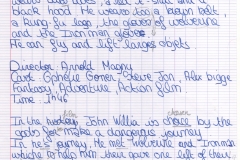 black hood. He wears too a brown belt,
a kung-fu legs, the gloves of wolverine
and the Ironman gloves.
He can fly and lift larges objets.
Director Arnold Magny
Cast: Ophélie Gomen - Steve Jon, Alex bigge
Fantasy, Adventure, Action film
Time: 1h46
In the John Willis is chosen by the
gods for make a dangerous journey.
In he's journey, He met wolverine and Ironman
to help him their gave one left of their